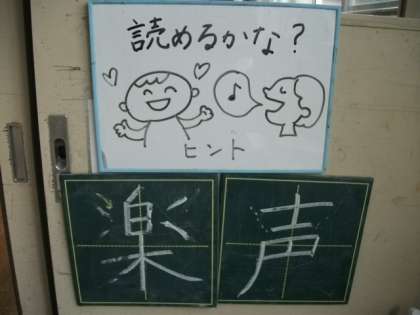 読めるかな？
ヒント
楽 声